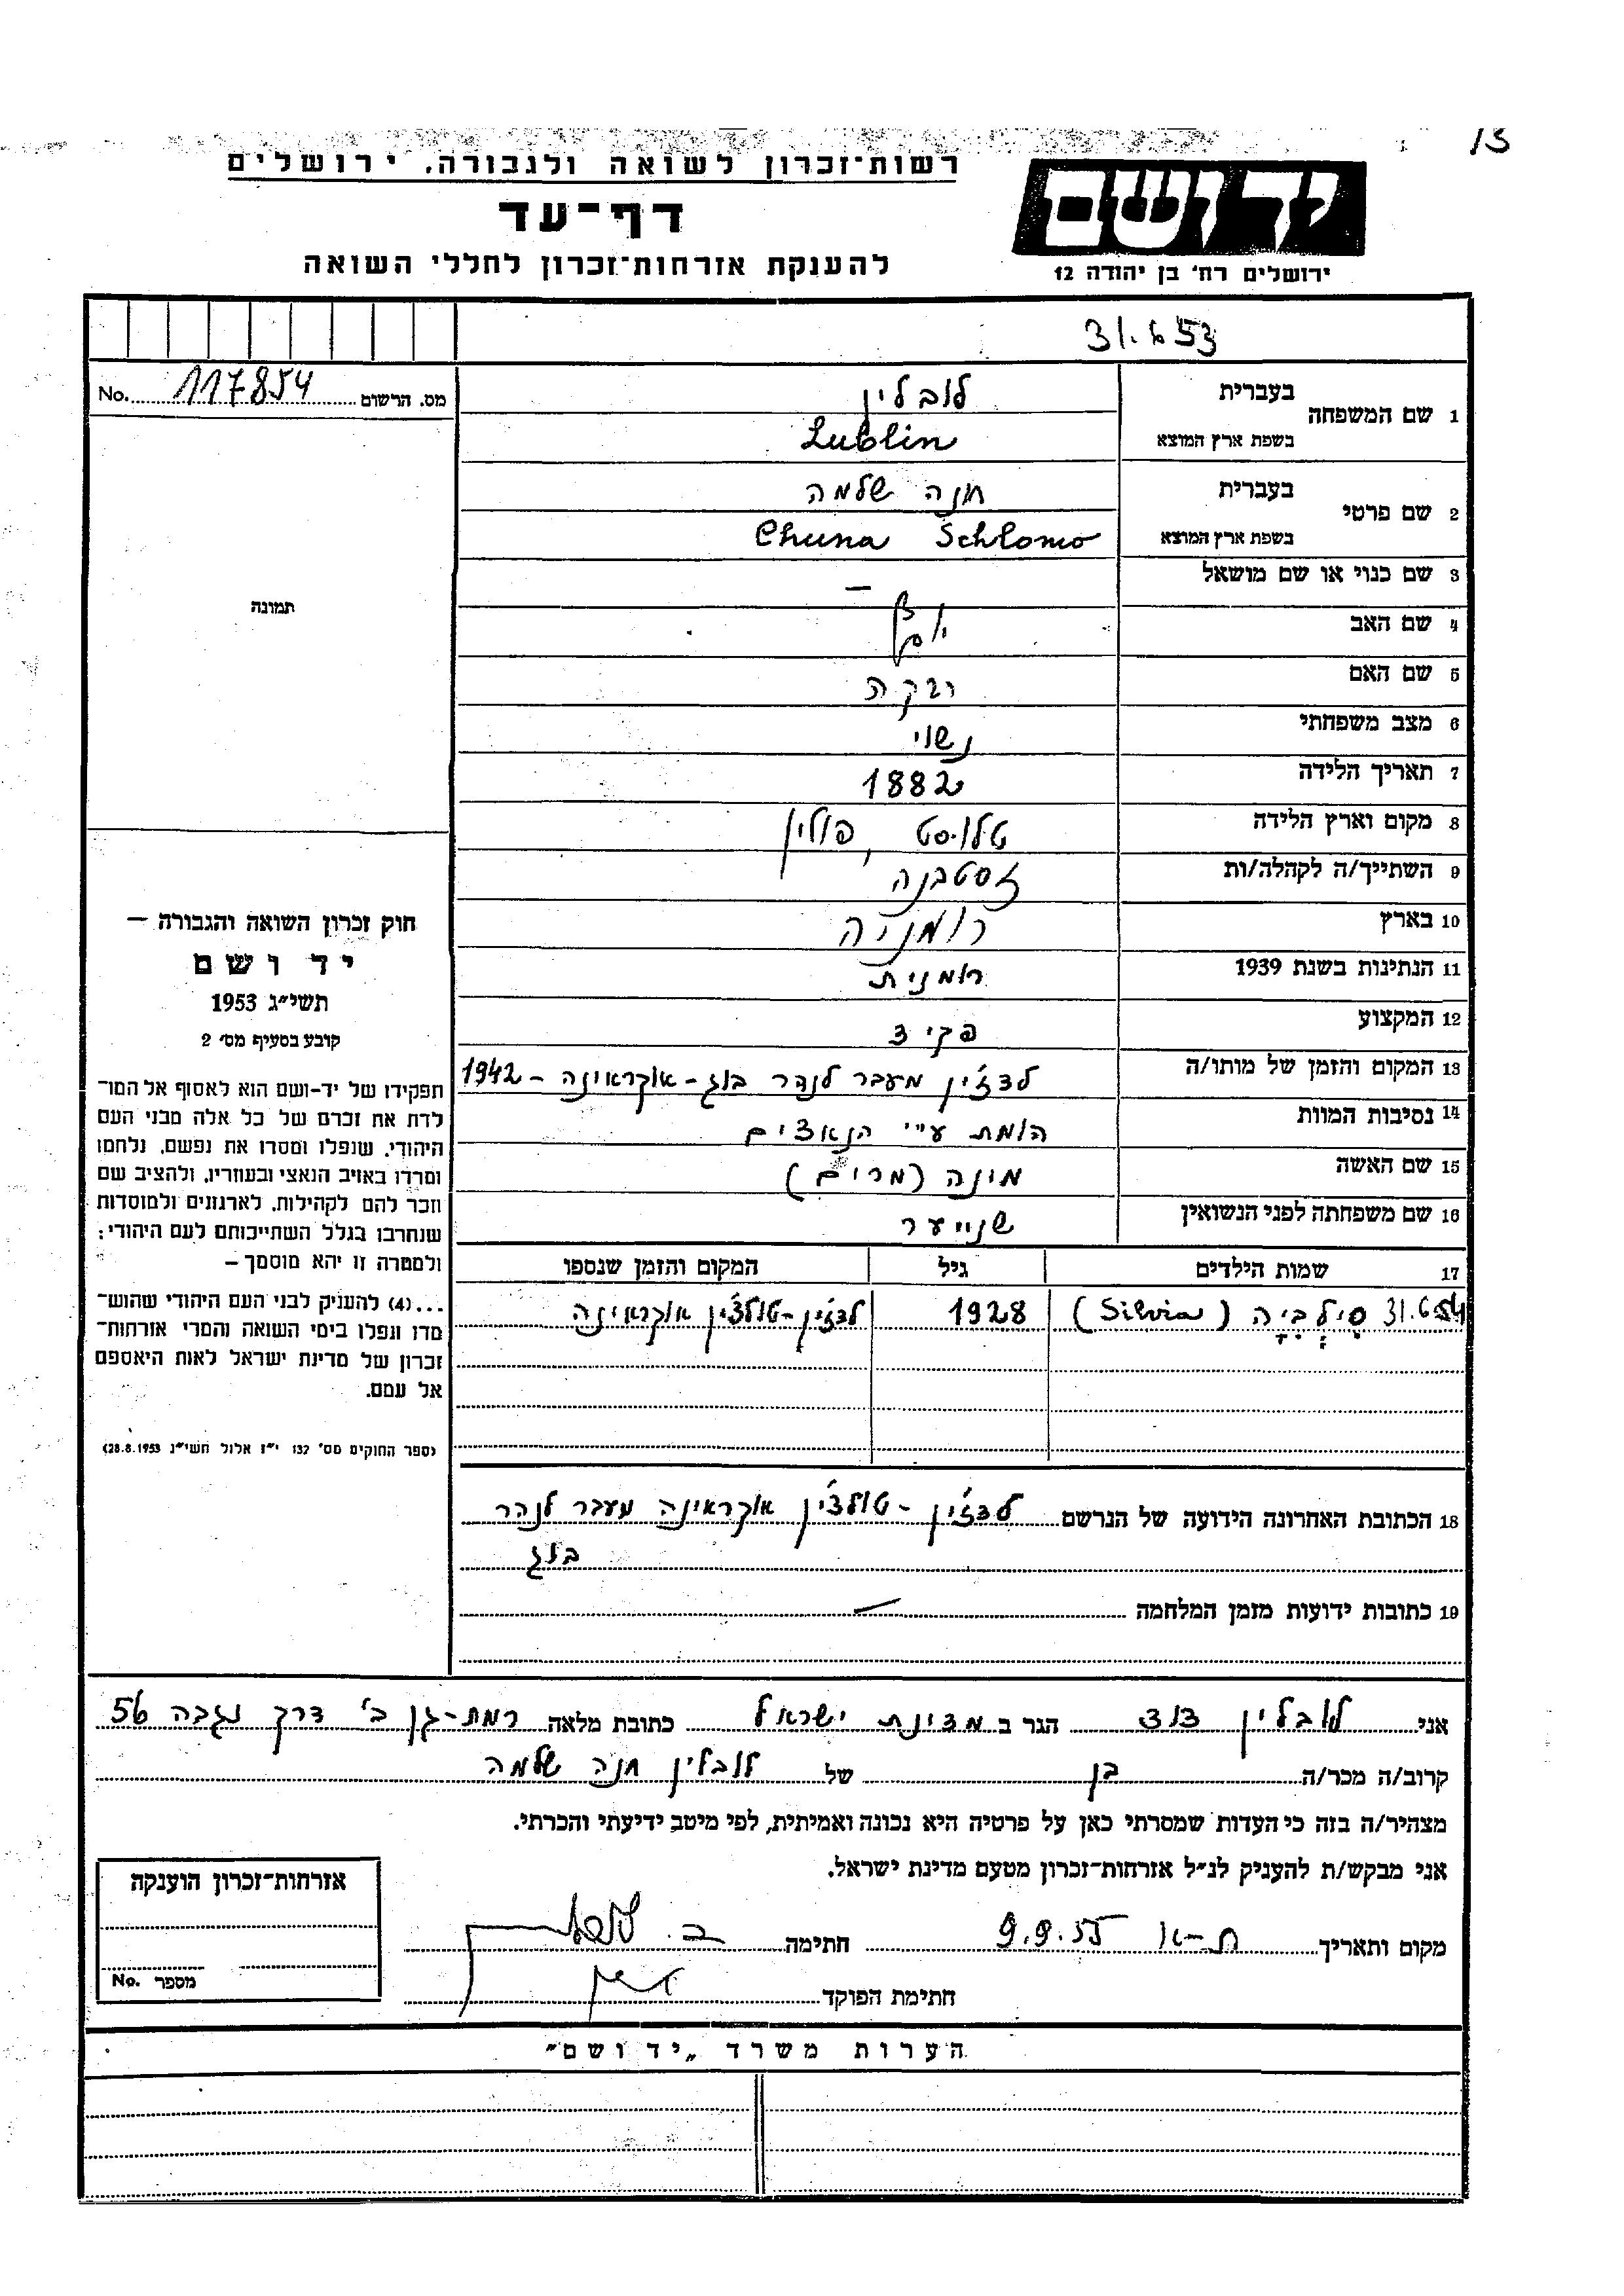 13
רשות־זכרון לשואה ולגבורה. ירושלים
דף־עד
להענקת אזרחות־זכרון לחללי השואה
ידושם
ירושלים רח׳ בן יהודה 12
מס. הרשום 117854 No.
1 שם המשפחה
בעברית
לובלין
בשפת ארץ המוצא
Lublin
2 שם פרטי
בעברית
חנה שלמה
בשפת ארץ המוצא
Chuna Schlomo
3 שם כנוי או שם מושאל –
4 שם האב
5 שם האם רבקה
6 מצב משפחתי נשוי
7 תאריך הלידה 1882
8 מקום וארץ הלידה טלוסט, פולין
9 השתייך/ה לקהלה/ות זסטבנה
10 בארץ רומניה
11 הנתינות בשנת 1939 רומנית
12 המקצוע פקיד
13 המקום והזמן של מותו/ה לדז׳ין מעבר לנהר בוג-אוקראינה - 1942
14 נסיבות המוות הומת ע״י הנאצים
15 שם האשה מינה (מרים)
16 שם משפחתה לפני הנשואין שנייער
17 שמות הילדים גיל המקום והזמן שנספו
סילביה (Silvia) 1928 לדז׳ין-טולצ׳ין אוקראינה
18 הכתובת האחרונה הידועה של הנרשם לדז׳ין-טולצ׳ין אוקראינה מעבר לנהר
בוג
19 כתובות ידועות מזמן המלחמה –
תמונה
חוק זכרון השואה והגבורה –
יד ושם
תשי״ג 1953
קובע בסעיף מס׳ 2
תפקידו של יד-ושם הוא לאסוף אל המו־
לדת את זכרם של כל אלה מבני העם
היהודי, שנפלו ומסרו את נפשם, נלחמו
ומרדו באויב הנאצי ובעוזריו, ולהציב שם
וזכר להם לקהילות, לארגונים ולמוסדות
שנחרבו בגלל השתייכותם לעם היהודי;
ולמטרה זו יהא מוסמך –
...(4) להעניק לבני העם היהודי שהוש־
מדו ונפלו בימי השואה והמרי אזרחות־
זכרון של מדינת ישראל לאות היאספם
אל עמם.
(ספר החוקים מס׳ 132 י״ז אלול תשי״ג 28.8.1953)
אני לובלין דוד הגר ב מדינת ישראל כתובת מלאה רמת-גן ב׳ דרך נגבה 56
קרוב/ה מכר/ה בן של לובלין חנה שלמה
מצהיר/ה בזה כי העדות שמסרתי כאן על פרטיה היא נכונה ואמיתית, לפי מיטב ידיעתי והכרתי.
אני מבקש/ת להעניק לנ״ל אזרחות־זכרון מטעם מדינת ישראל.
מקום ותאריך ת-א 9.9.55 חתימה
חתימת הפוקד
אזרחות־זכרון הוענקה
מספר No.
הערות משרד „יד ושם״